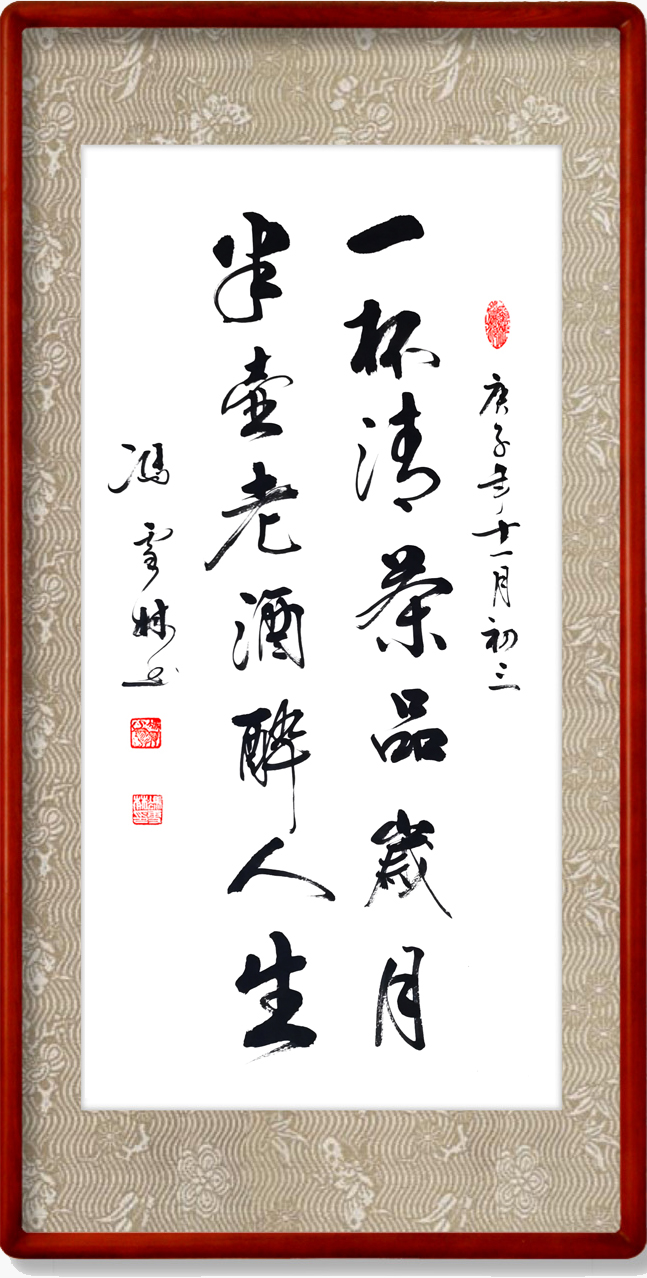 庚子年十一月初三
一杯清茶品歲月
半壺老酒醉人生
馮雪林书